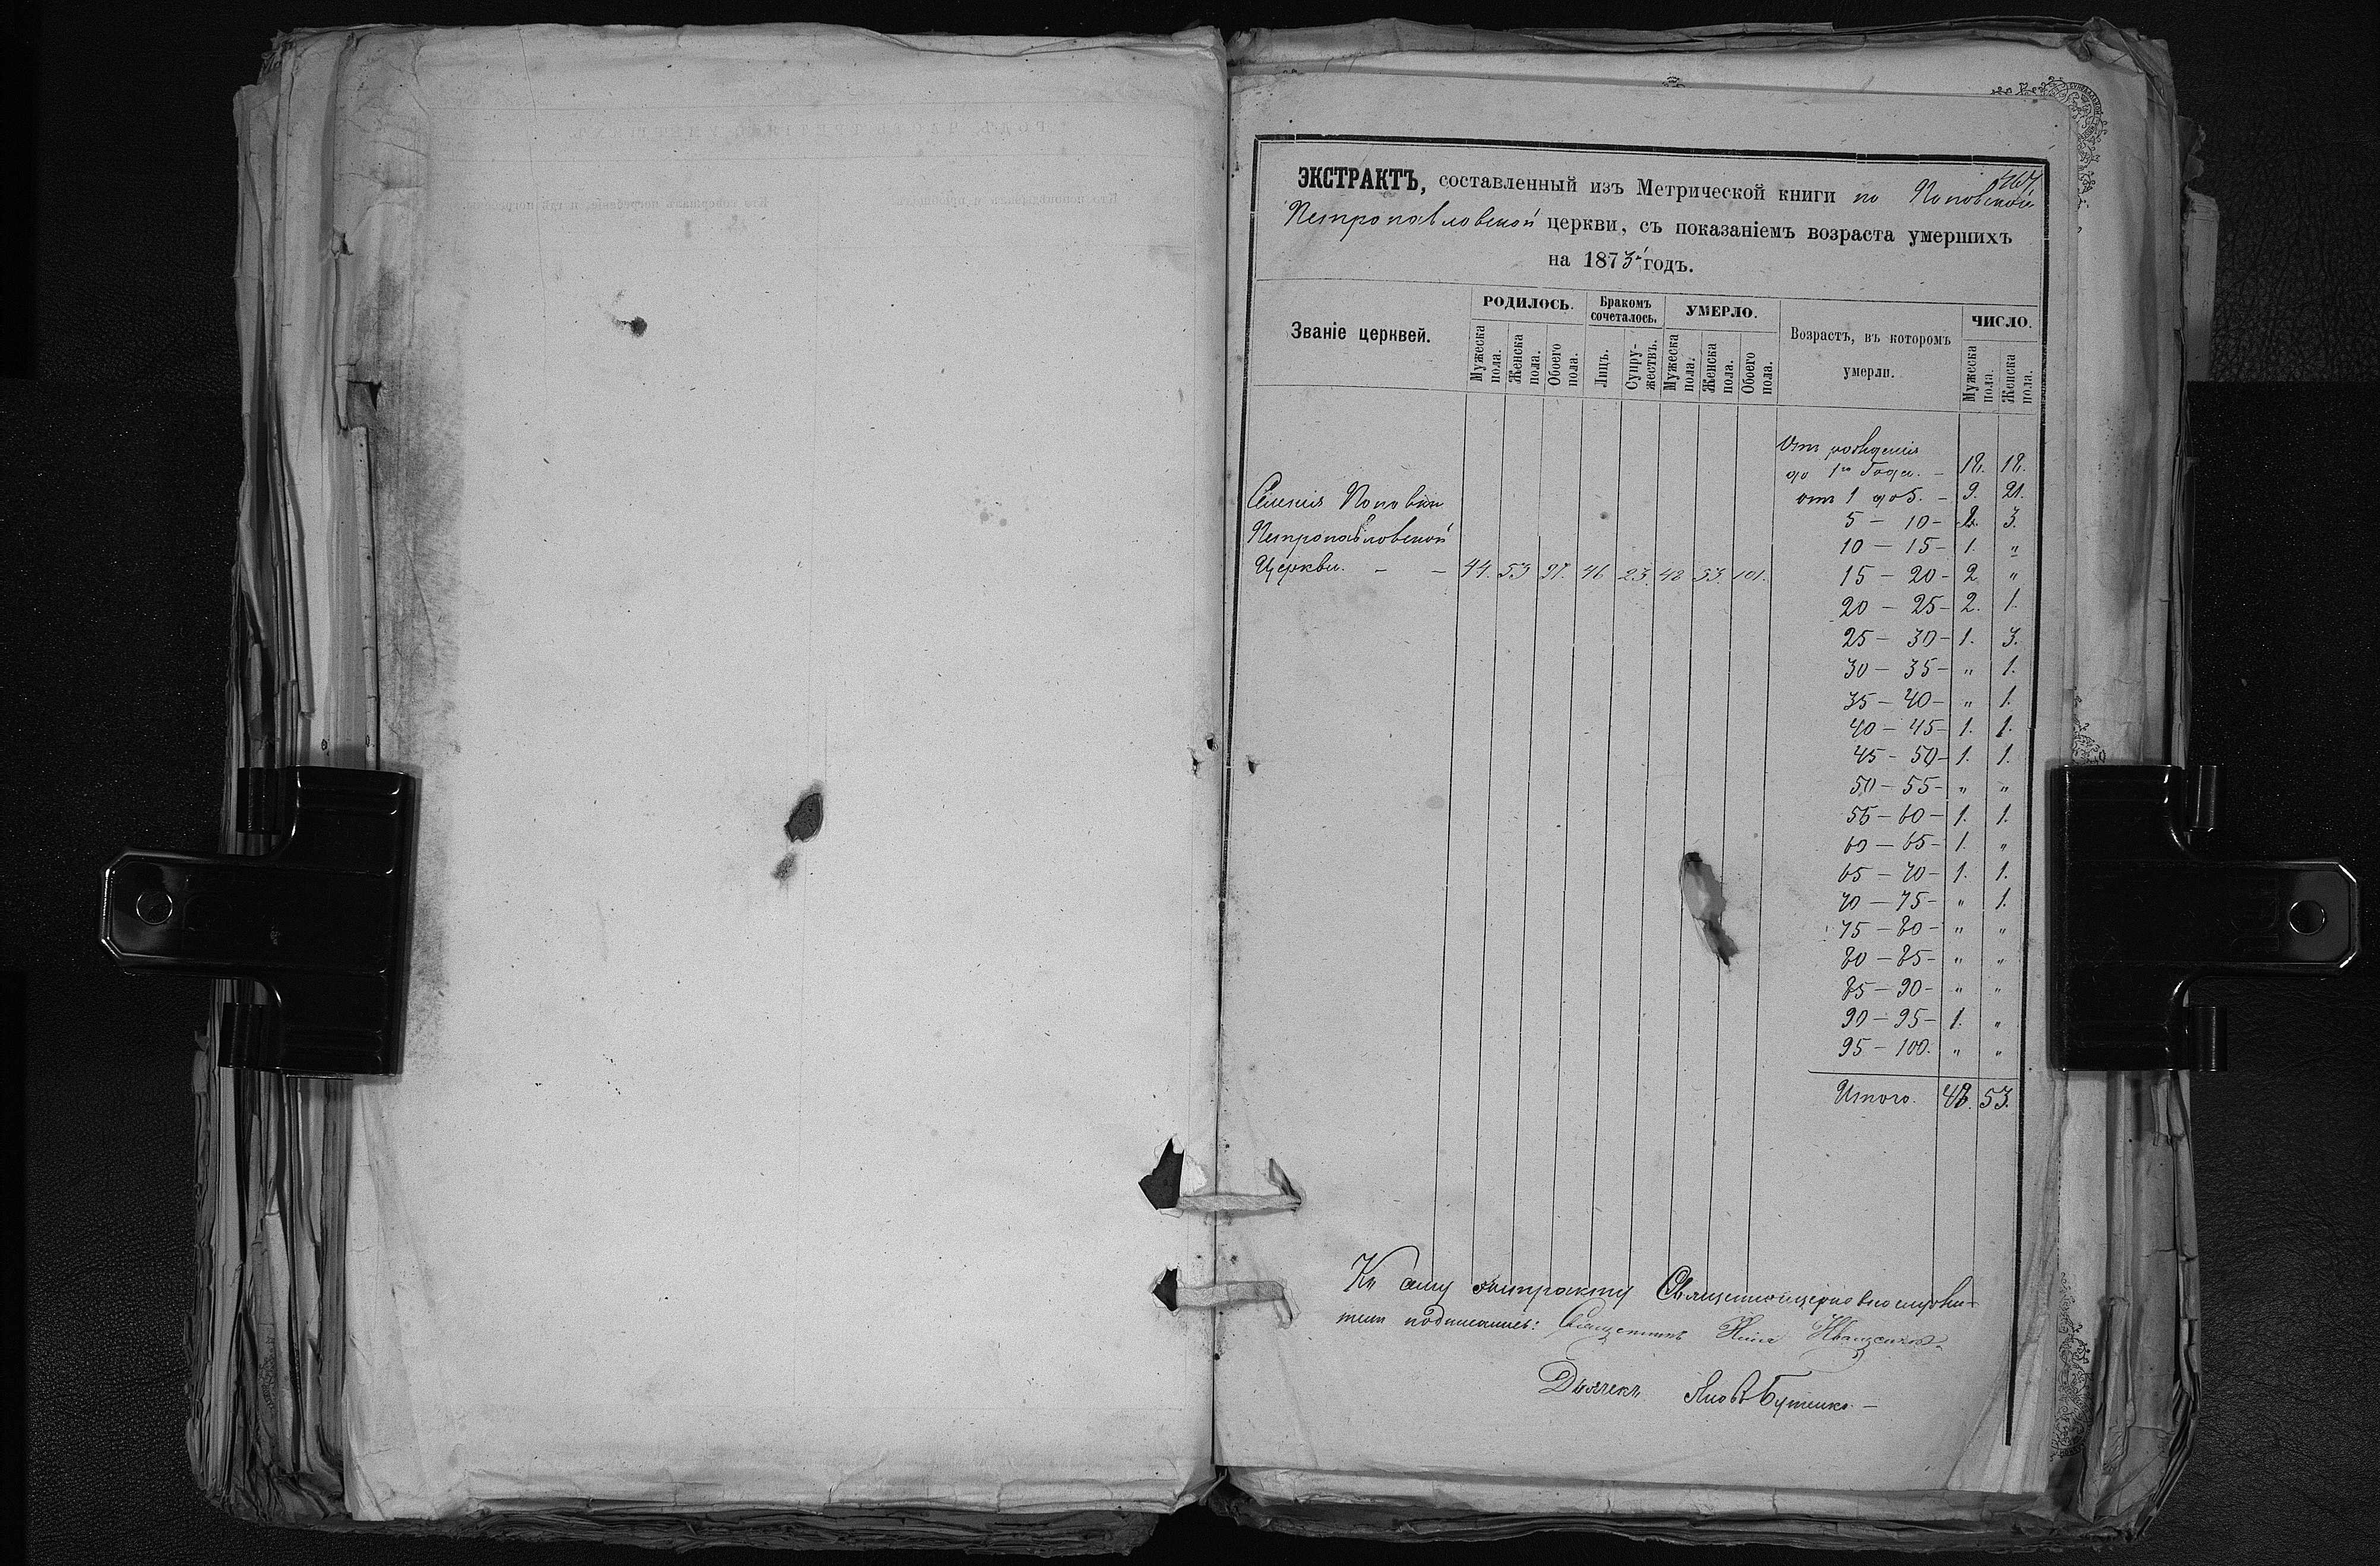 ЭКСТРАКТЪ, составленный изъ Метрической книги по Поповской
Петропавловской церкви, съ показаніемъ возраста умершихъ
на 1873 годъ.
Званіе церквей.
РОДИЛОСЬ.
Бракомъ сочеталось.
УМЕРЛО.
Возрастъ, въ которомъ умерли.
ЧИСЛО.
Мужеска пола.
Женска пола.
Обоего пола.
Лицъ.
Супружествъ.
Мужеска пола.
Женска пола.
Обоего пола.
Мужеска пола.
Женска пола.
От рождения
до 1го Года. – 18. 18.
от 1 до 5. – 9. 21.
5 – 10 – 3.
10 – 15 – 1. "
15 – 20 – 2 "
20 – 25 – 2. 1.
25 – 30 – 1. 3.
30 – 35 – " 1.
35 – 40 – " 1.
40 – 45 – 1. 1.
45 – 50 – 1. 1.
50 – 55 – " "
55 – 60 – 1. 1.
60 – 65 – 1. "
65 – 70 – 1. 1.
70 – 75 – " 1.
75 – 80 – " "
80 – 85 – " "
85 – 90 – " "
90 – 95 – 1. "
95 – 100. " "
Итого. 48. 53.
Поповки
Петропавловской
Церкви. – – 44. 53 97. 46 23. 48 53. 101.
Къ сему экстракту Священноцерковнослужи-
тели подписались: Священникъ
Дьячекъ Яковъ Бутенко. –